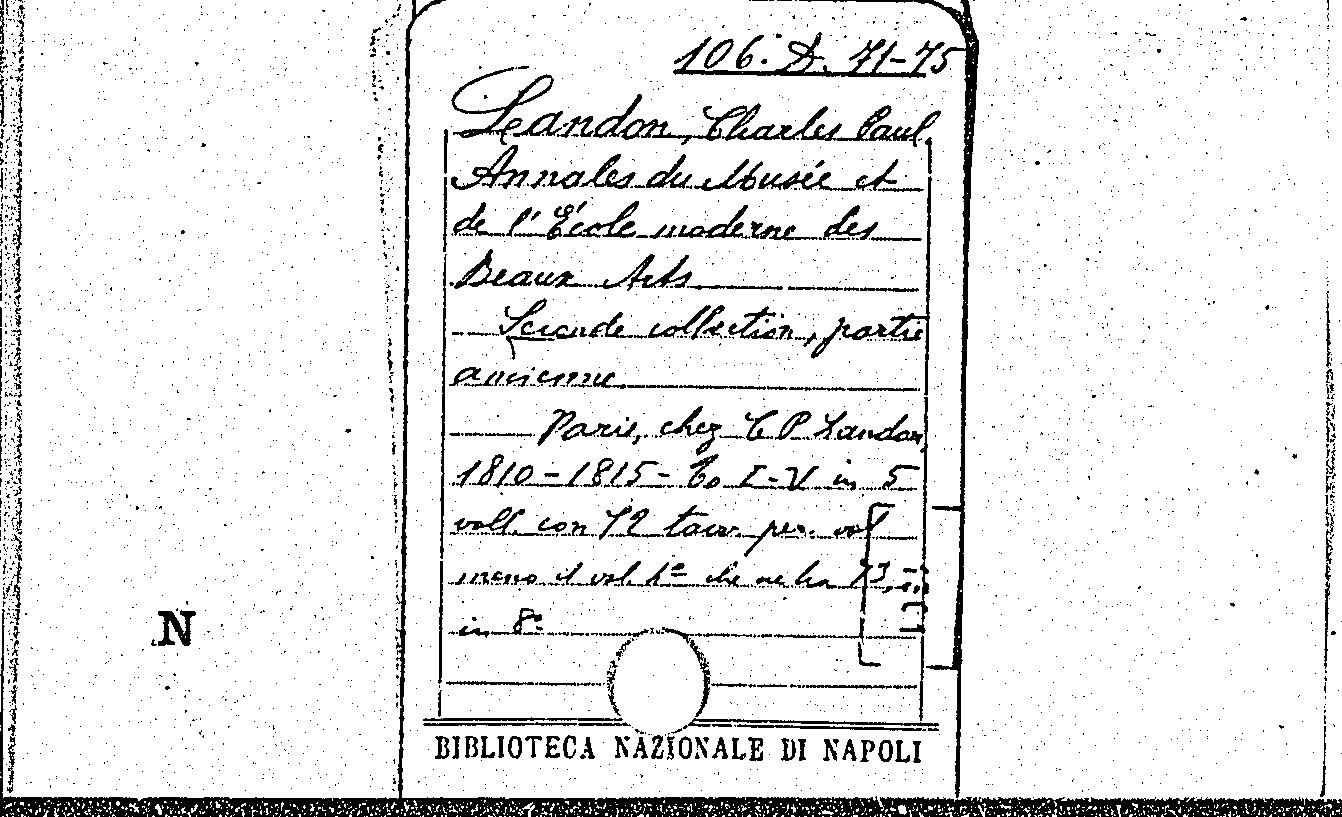 106. A. 71-75
Landon, Charles Paul.
Annales du Musée et
de l'École moderne des
Beaux Arts
Seconde collection, partie
ancienne
Paris, chez C P Landon,
1810-1815- To I-V in 5
voll. con 72 tavv. per. vol
meno il vol. 1º che ne ha 73,
in 8º
N
BIBLIOTECA NAZIONALE DI NAPOLI